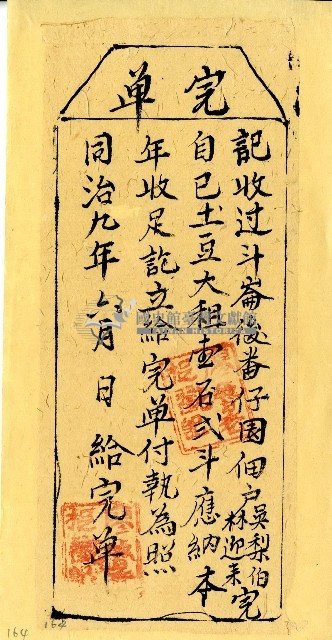 完单
記收过斗崙後番仔園佃户吳梨伯林迎来完
自己土豆大租壹石弍斗應納本
年收足訖立給完单付執為照
同治九年 六月 日 給完单
164
164